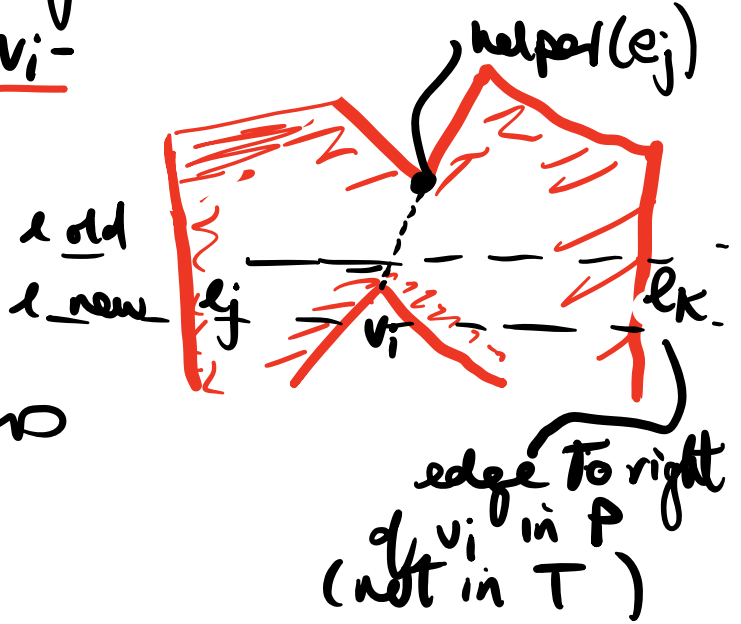 vi-
helper(ej)
l old
l new
ej
vi
ek
edge to right
of vi in P
(not in T)